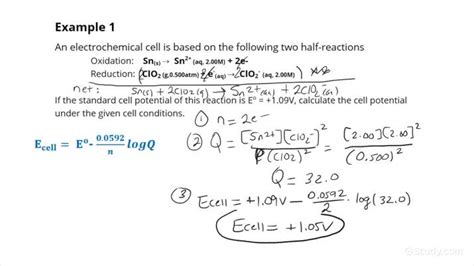 Example 1
An electrochemical cell is based on the following two half-reactions
Oxidation: Sn(s) → Sn²⁺(aq, 2.00M) + 2e-
Reduction: (ClO₂ (g,0.500atm) 2e⁻(aq) → 2ClO₂⁻(aq, 2.00M))
net: Sn(s) + 2ClO₂(g) → Sn²⁺(aq) + 2ClO₂⁻(aq)
If the standard cell potential of this reaction is E° = +1.09V, calculate the cell potential
under the given cell conditions.
① n = 2e⁻
E cell = E°- 0.0592/n log Q
② Q = [Sn²⁺][ClO₂⁻]²/P(ClO₂)² = [2.00][2.00]²/(0.500)²
Q = 32.0
③ Ecell = +1.09V - 0.0592/2 · log(32.0)
Ecell = +1.05V
Study.com